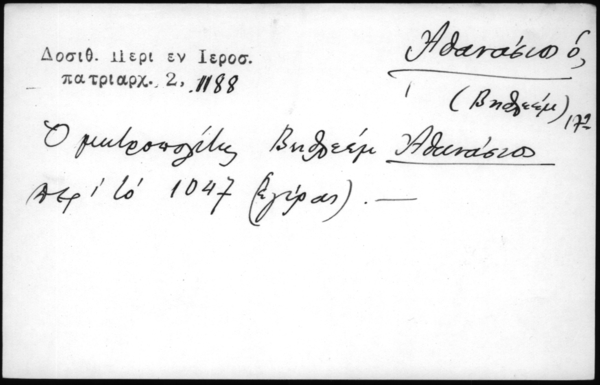 Δοσιθ. Περι εν Ιεροσ.
πατριαρχ. 2, 1188
Ἀθανάσιος ὁ,
(Βηθλεέμ) 17ος
Ὁ μητροπολίτης Βηθλεέμ Ἀθανάσιος
περὶ τὸ 1047 (Ἐγίρας). —